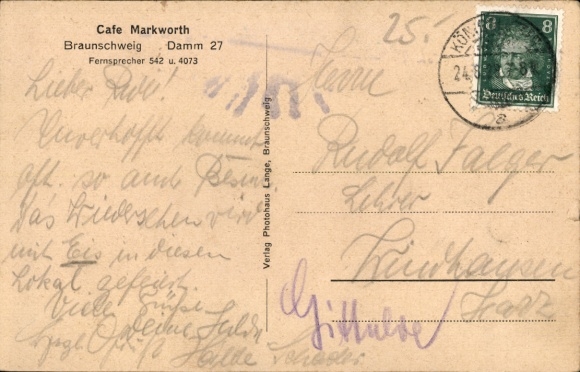 Cafe Markworth
Braunschweig Damm 27
Fernsprecher 542 u. 4073
Lieber Rudi!
Unverhofft kommt
oft. so auch Besuch.
Das Wiedersehen wird
mit Eis in diesen
Lokal gefeiert.
Viele Grüße
deine Hulda
Verlag Photohaus Lange, Braunschweig
25.-
8
Deutsches Reich
24.
Herrn
Rudolf Falger
Lehrer
Windhausen
Harz
Gittelde